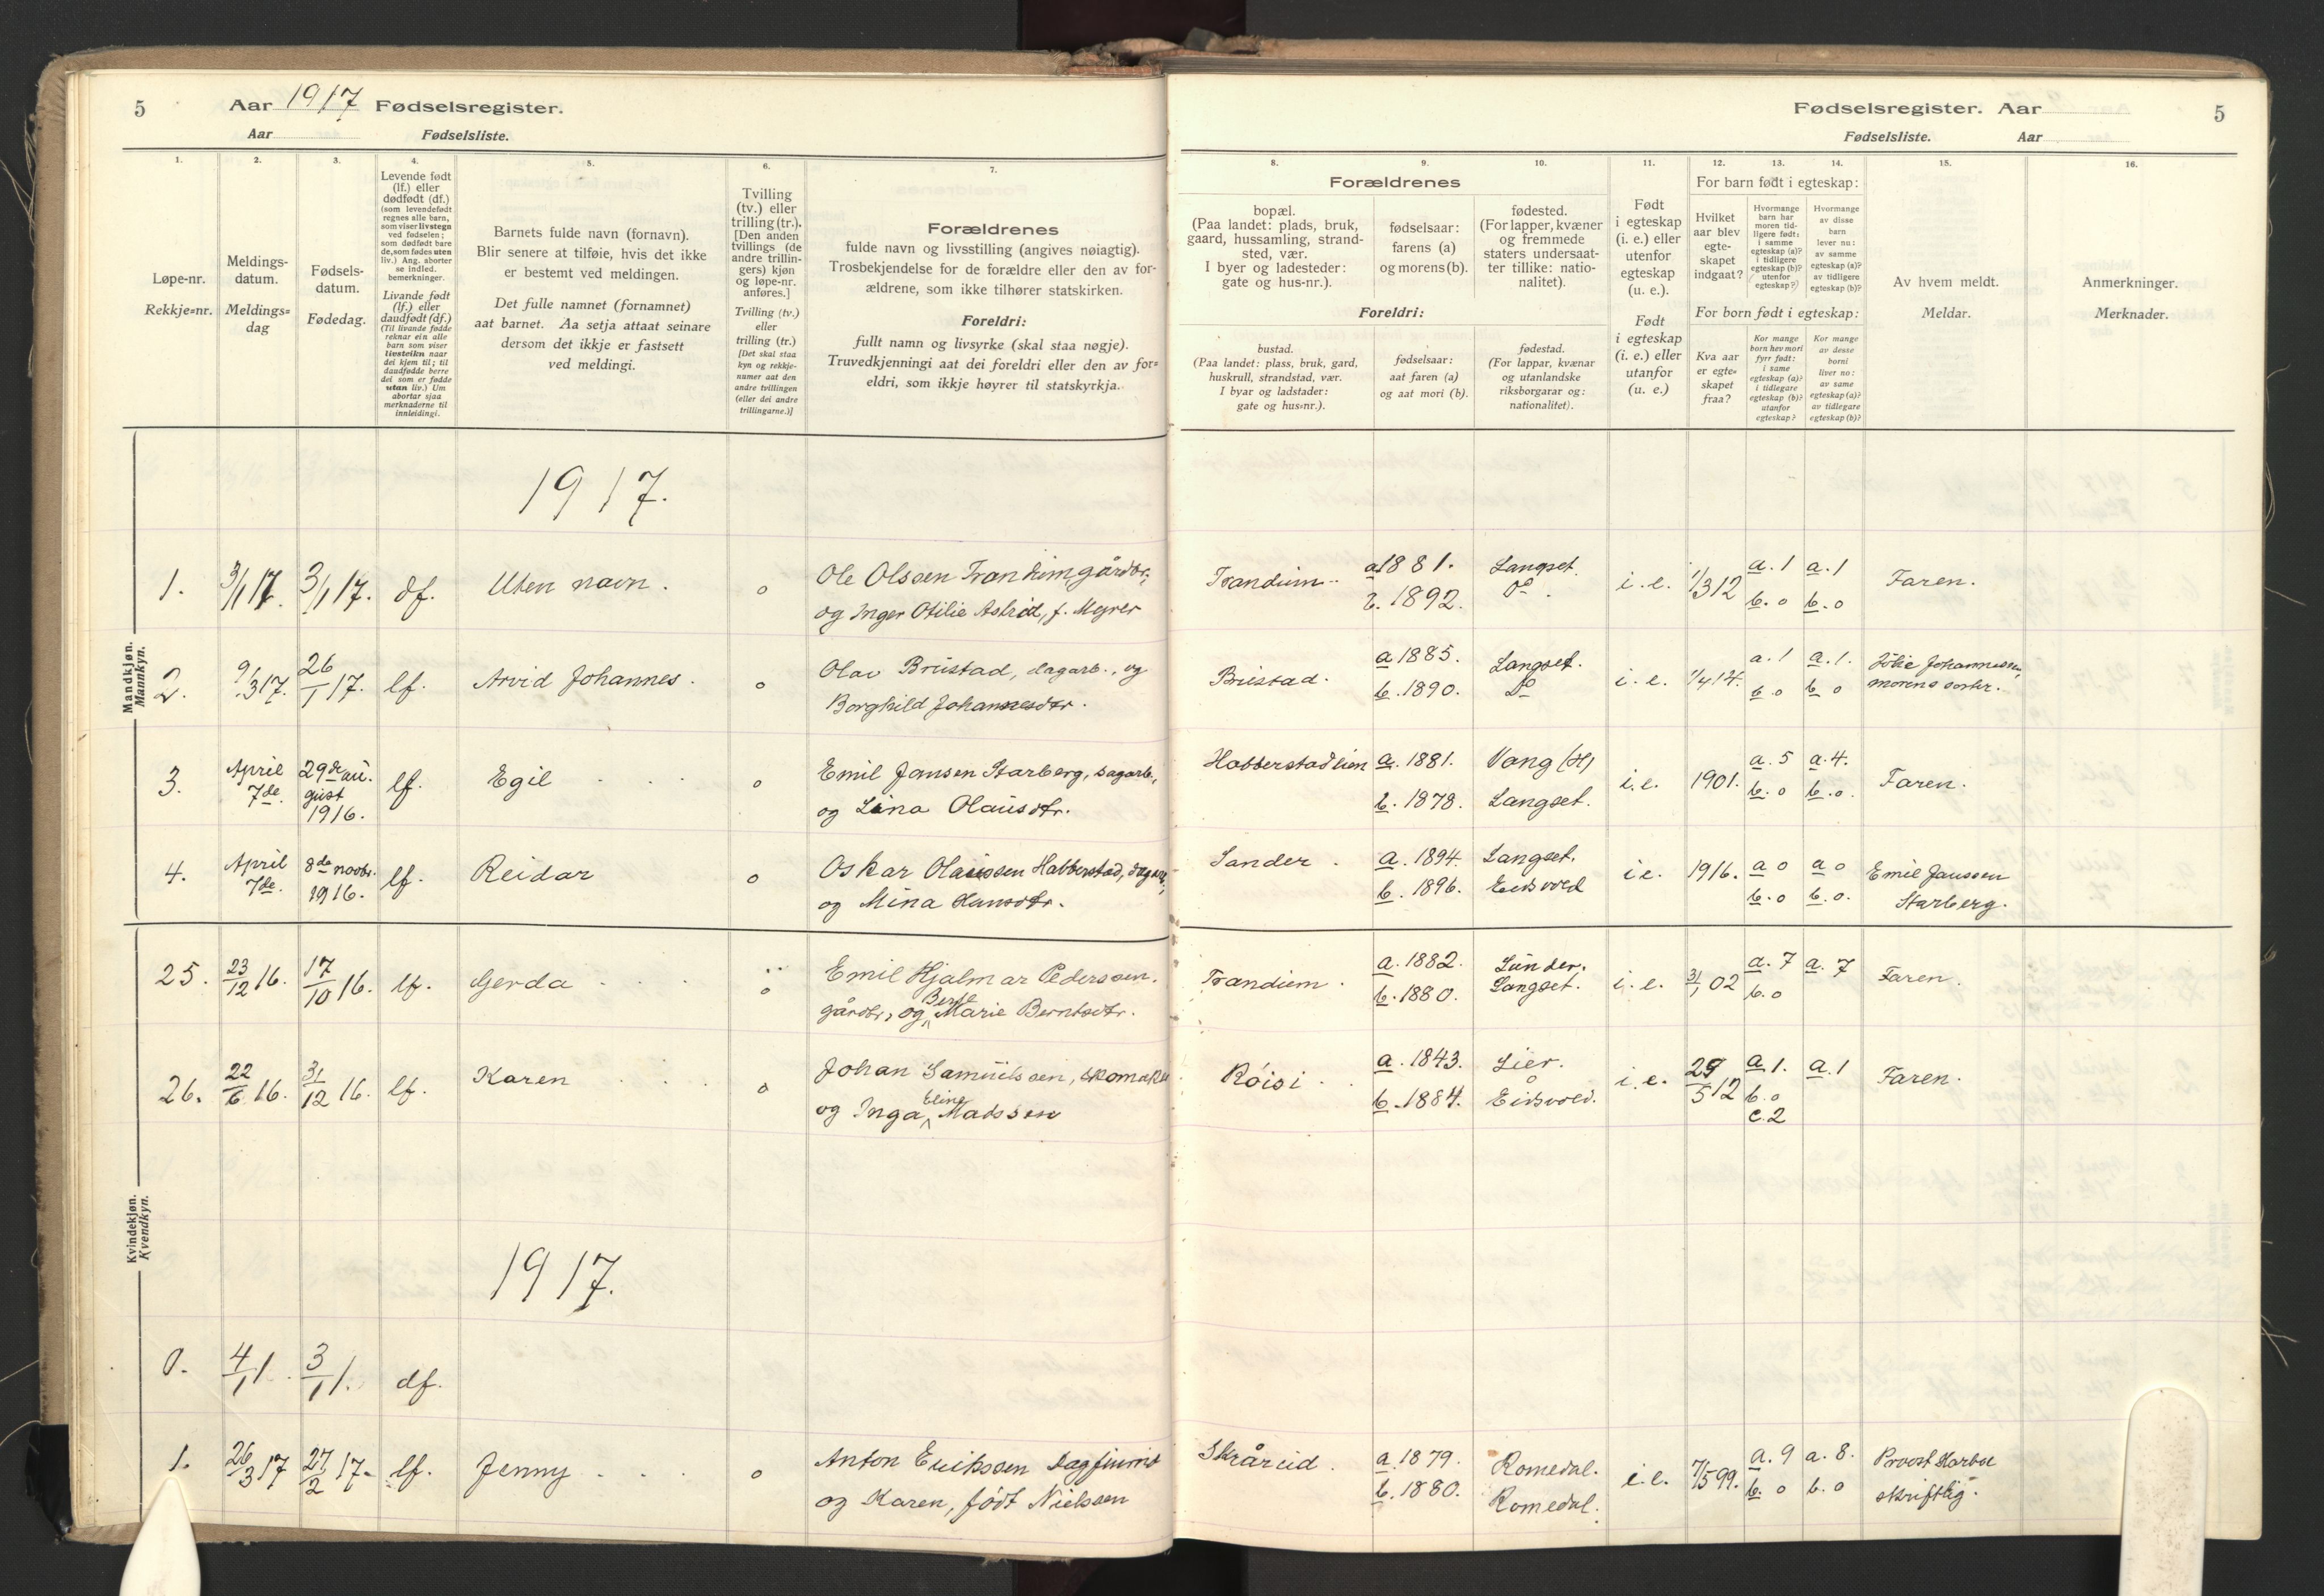 5 Aar 1917 Fødselsregister.
Aar Fødselsliste.
1. 2. 3. 4. 5. 6. 7.
Løpe-nr.
Rekkje=nr.
Meldings-
datum.
Meldings=
dag
Fødsels-
datum.
Fødedag.
Levende født
(lf.) eller
dødfødt (df.)
(som levendefødt
regnes alle barn,
som viser livstegn
ved fødselen;
som dødfødt bare
de, som fødes uten
liv.) Ang. aborter
se indled.
bemerkninger.
Livande født
(lf.) eller
daudfødt (df.)
(Til livande fødde
reknar ein alle
barn som viser
livsteikn naar
dei kjem til; til
daudfødde berre
dei som er fødde
utan liv.) Um
abortar sjaa
merknaderne til
innleidingi.
Barnets fulde navn (fornavn).
Blir senere at tilføie, hvis det ikke
er bestemt ved meldingen.
Det fulle namnet (fornamnet)
aat barnet. Aa setja attaat seinare
dersom det ikkje er fastsett
ved meldingi.
Tvilling
(tv.) eller
trilling (tr.).
[Den anden
tvillings (de
andre trillin-
gers) kjøn
og løpe-nr.
anføres.]
Tvilling (tv.)
eller
trilling (tr.)
[Det skal staa
kyn og rekkje-
numer aat den
andre tvillingen
(eller dei andre
trillingarne.)]
Forældrenes
fulde navn og livsstilling (angives nøiagtig).
Trosbekjendelse for de forældre eller den av for-
ældrene, som ikke tilhører statskirken.
Foreldri:
fullt namn og livsyrke (skal staa nøgje).
Truvedkjenningi aat dei foreldri eller den av for=
eldri, som ikkje høyrer til statskyrkja.
Mandkjøn.
Mannkyn.
1917.
1. 3/1 17. 3/1 17. df. Uten navn. o Ole Olssen Trandum gårdbr.,
og Inger Otilie Astrid, f. Myrer
2. 9/3 17. 26/1 17. lf. Arvid Johannes. o Olav Brustad, dagarb., og
Borghild Johannesdtr.
3. April
7de.
29de au.
gust
1916.
lf. Egil o Emil Jansen Starberg, dagarb.,
og Lina Olausdtr.
4. April
7de.
8de novbr.
1916.
lf. Reidar o Oskar Olaussen Habberstad, dagarb.,
og Mina Hansdtr.
Kvindekjøn.
Kvendkyn.
25. 23/12 16. 17/10 16. lf. Gerda o Emil Hjalmar Pedersen.
gårdbr., og Berte Marie Berntsdtr.
26. 22/6 16. 31/12 16. lf. Karen o Johan Samuelsen, skomaker
og Inga Eline Madssen
1917.
0. 4/1 1. 3/1 1. df.
1. 26/3 17 27/2 17. lf. Jenny o Anton Erikssen
og Karen, født Nielssen
Fødselsregister. Aar 5
Fødselsliste. Aar
8. 9. 10. 11. 12. 13. 14. 15. 16.
Forældrenes
bopæl.
(Paa landet: plads, bruk,
gaard, hussamling, strand-
sted, vær.
I byer og ladesteder:
gate og hus-nr.).
fødselsaar:
farens (a)
og morens (b).
fødested.
(For lapper, kvæner
og fremmede
staters undersaat-
ter tillike: natio-
nalitet).
Foreldri:
bustad.
(Paa landet: plass, bruk, gard,
huskrull, strandstad, vær.
I byar og ladstader:
gate og hus=nr.).
fødselsaar:
aat faren (a)
og aat mori (b).
fødestad.
(For lappar, kvænar
og utanlandske
riksborgarar og:
nationalitet).
Født
i egteskap
(i. e.) eller
utenfor
egteskap
(u. e.).
Født
i egteskap
(i. e.) eller
utanfor
(u. e.)
For barn født i egteskap:
Hvilket
aar blev
egte-
skapet
indgaat?
Hvormange
barn har
moren tid-
ligere født:
i samme
egteskap (a)?
i tidligere
egteskap (b)?
utenfor
egteskap?
Hvormange
av disse
barn
lever nu:
av samme
egteskap (a)?
av tidligere
egteskap (b)?
For born født i egteskap:
Kva aar
er egte=
skapet
fraa?
Kor mange
born hev mori
fyrr født:
i same
egteskap (a)?
i tidlegare
egteskap (b)?
utanfor
egteskap?
Kor mange
av desse
borni
liver no:
av same
egteskap (a)?
av tidlegare
egteskap (b)?
Av hvem meldt.
Meldar.
Anmerkninger.
Merknader.
Trandum. a 1881. Langset. i. e. 1/3 12 a. 1 a. 1 Faren.
b. 1892. Do. b. o b. o
Brustad. a 1885. Langset. i. e. 1/4 14. a. 1 a. 1. Julie Johannessen,
b. 1890. Do b. o b. o morens søster.
Habberstadlien a. 1881. Vang (H) i. e. 1901. a. 5 a. 4. Faren.
b. 1878. Langset. b. o b. o.
Sander. a. 1894. Langset. i. e. 1916. a o a o Emil Janssen
b. 1896. Eidsvold b. o b. o. Starberg.
Trandum. a. 1882. Lunder. i. e. 31/1 02 a. 7 a. 7 Faren.
b. 1880. Langset. b. o
Röisi. a. 1843. Lier. i. e. 29/5 12 a 1. a. 1 Faren.
b. 1884. Eidsvold. b. o
c. 2
Skråreid. a. 1879. Romedal. i. e. 7/5 99. a. 9 a. 8. Provst
b. 1880. Romedal. b. o b. o skriftlig.